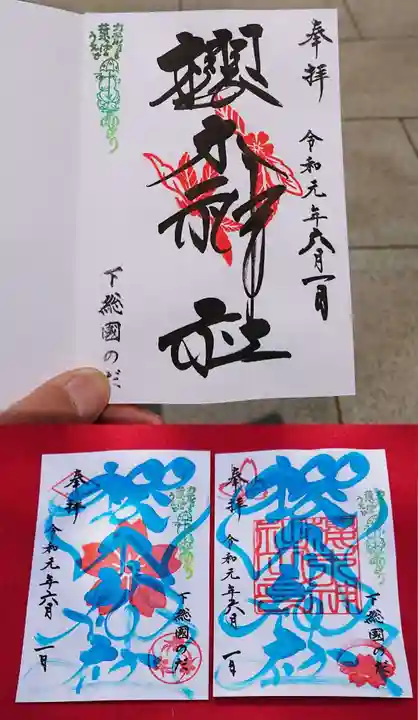 奉拝
令和元年六月一日
櫻木神社
下総國のだ
奉拝
令和元年六月
一日
櫻木神社
下総國のだ
奉拝
令和元年六月
一日
櫻木神社
下総國のだ